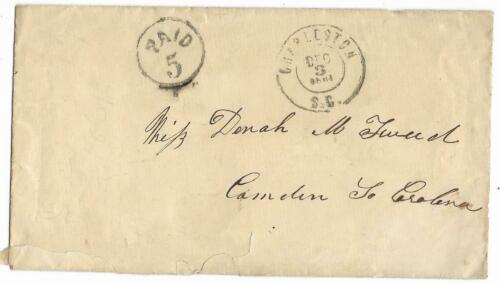 PAID
5
CHARLESTON
DEC
3
1861
S.C.
Miss Donah M Tweed
Camden So Carolina